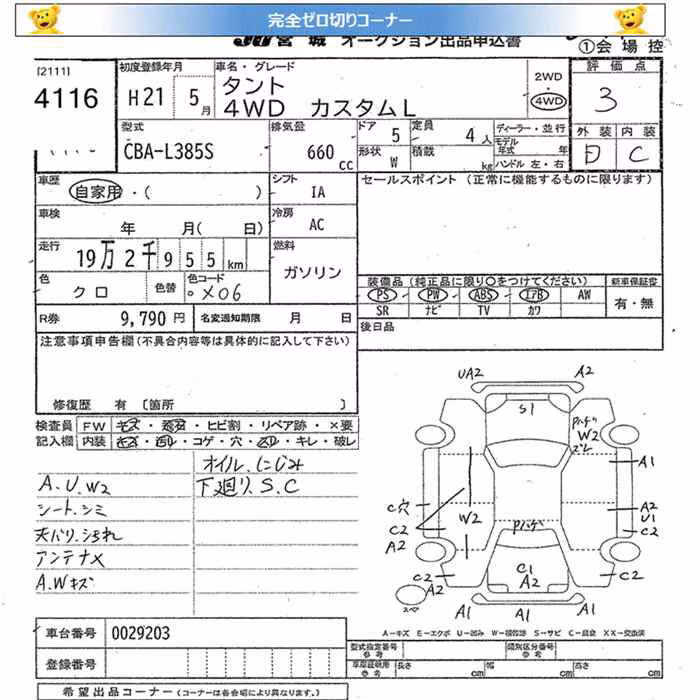 完全ゼロ切りコーナー
宮 城 オークション出品申込書
①会 場 控
[2111]
4116
初度登録年月
H21 5月
車名・グレード
タント
4WD カスタムL
2WD
4WD
評 価 点
3
外 装 内 装
D C
型式
CBA-L385S
排気量
660 cc
ドア 5
定員 4人
形状 W
積載 kg
ディーラー・並行
モデル年式 年
ハンドル 左・右
車歴
自家用・( )
シフト
IA
セールスポイント (正常に機能するものに限ります)
車検
年 月( 日)
冷房
AC
走行
19万2千955km
燃料
ガソリン
色
クロ
色替
色コード
X06
装備品(純正品に限り○をつけてください)
新車保証書
PS PW ABS エアB AW
有・無
SR ナビ TV カワ
R券 9,790 円
名変通知期限 月 日
後日品
注意事項申告欄(不具合内容等は具体的に記入して下さい)
修復歴 有 〔箇所 〕
検査員 FW キズ・飛石・ヒビ割・リペア跡・×要
記入欄 内装 キズ・汚れ・コゲ・穴・スリ・キレ・破レ
オイルにじみ
A.U.W2
下廻り.S.C
シートシミ
天バリ.シミよごれ
アンテナX
A.Wキズ
UA2 A2
S1
Pハゲ
W2
ズレ
A1
C穴
C2
A2
W2
Pハゲ
A2
U1
C2
C2
A2
C1
A2
C2
スペア
A1 A1 A1
A-キズ E-エクボ U-凹み W-補修跡 S-サビ C-腐食 XX-交換済
車台番号 0029203
型式指定番号 参考
類別区分番号 参考
登録番号
車庫証明用 参考
長さ cm 幅 cm 高さ cm
希望出品コーナー (コーナーは各会場により異なります。)